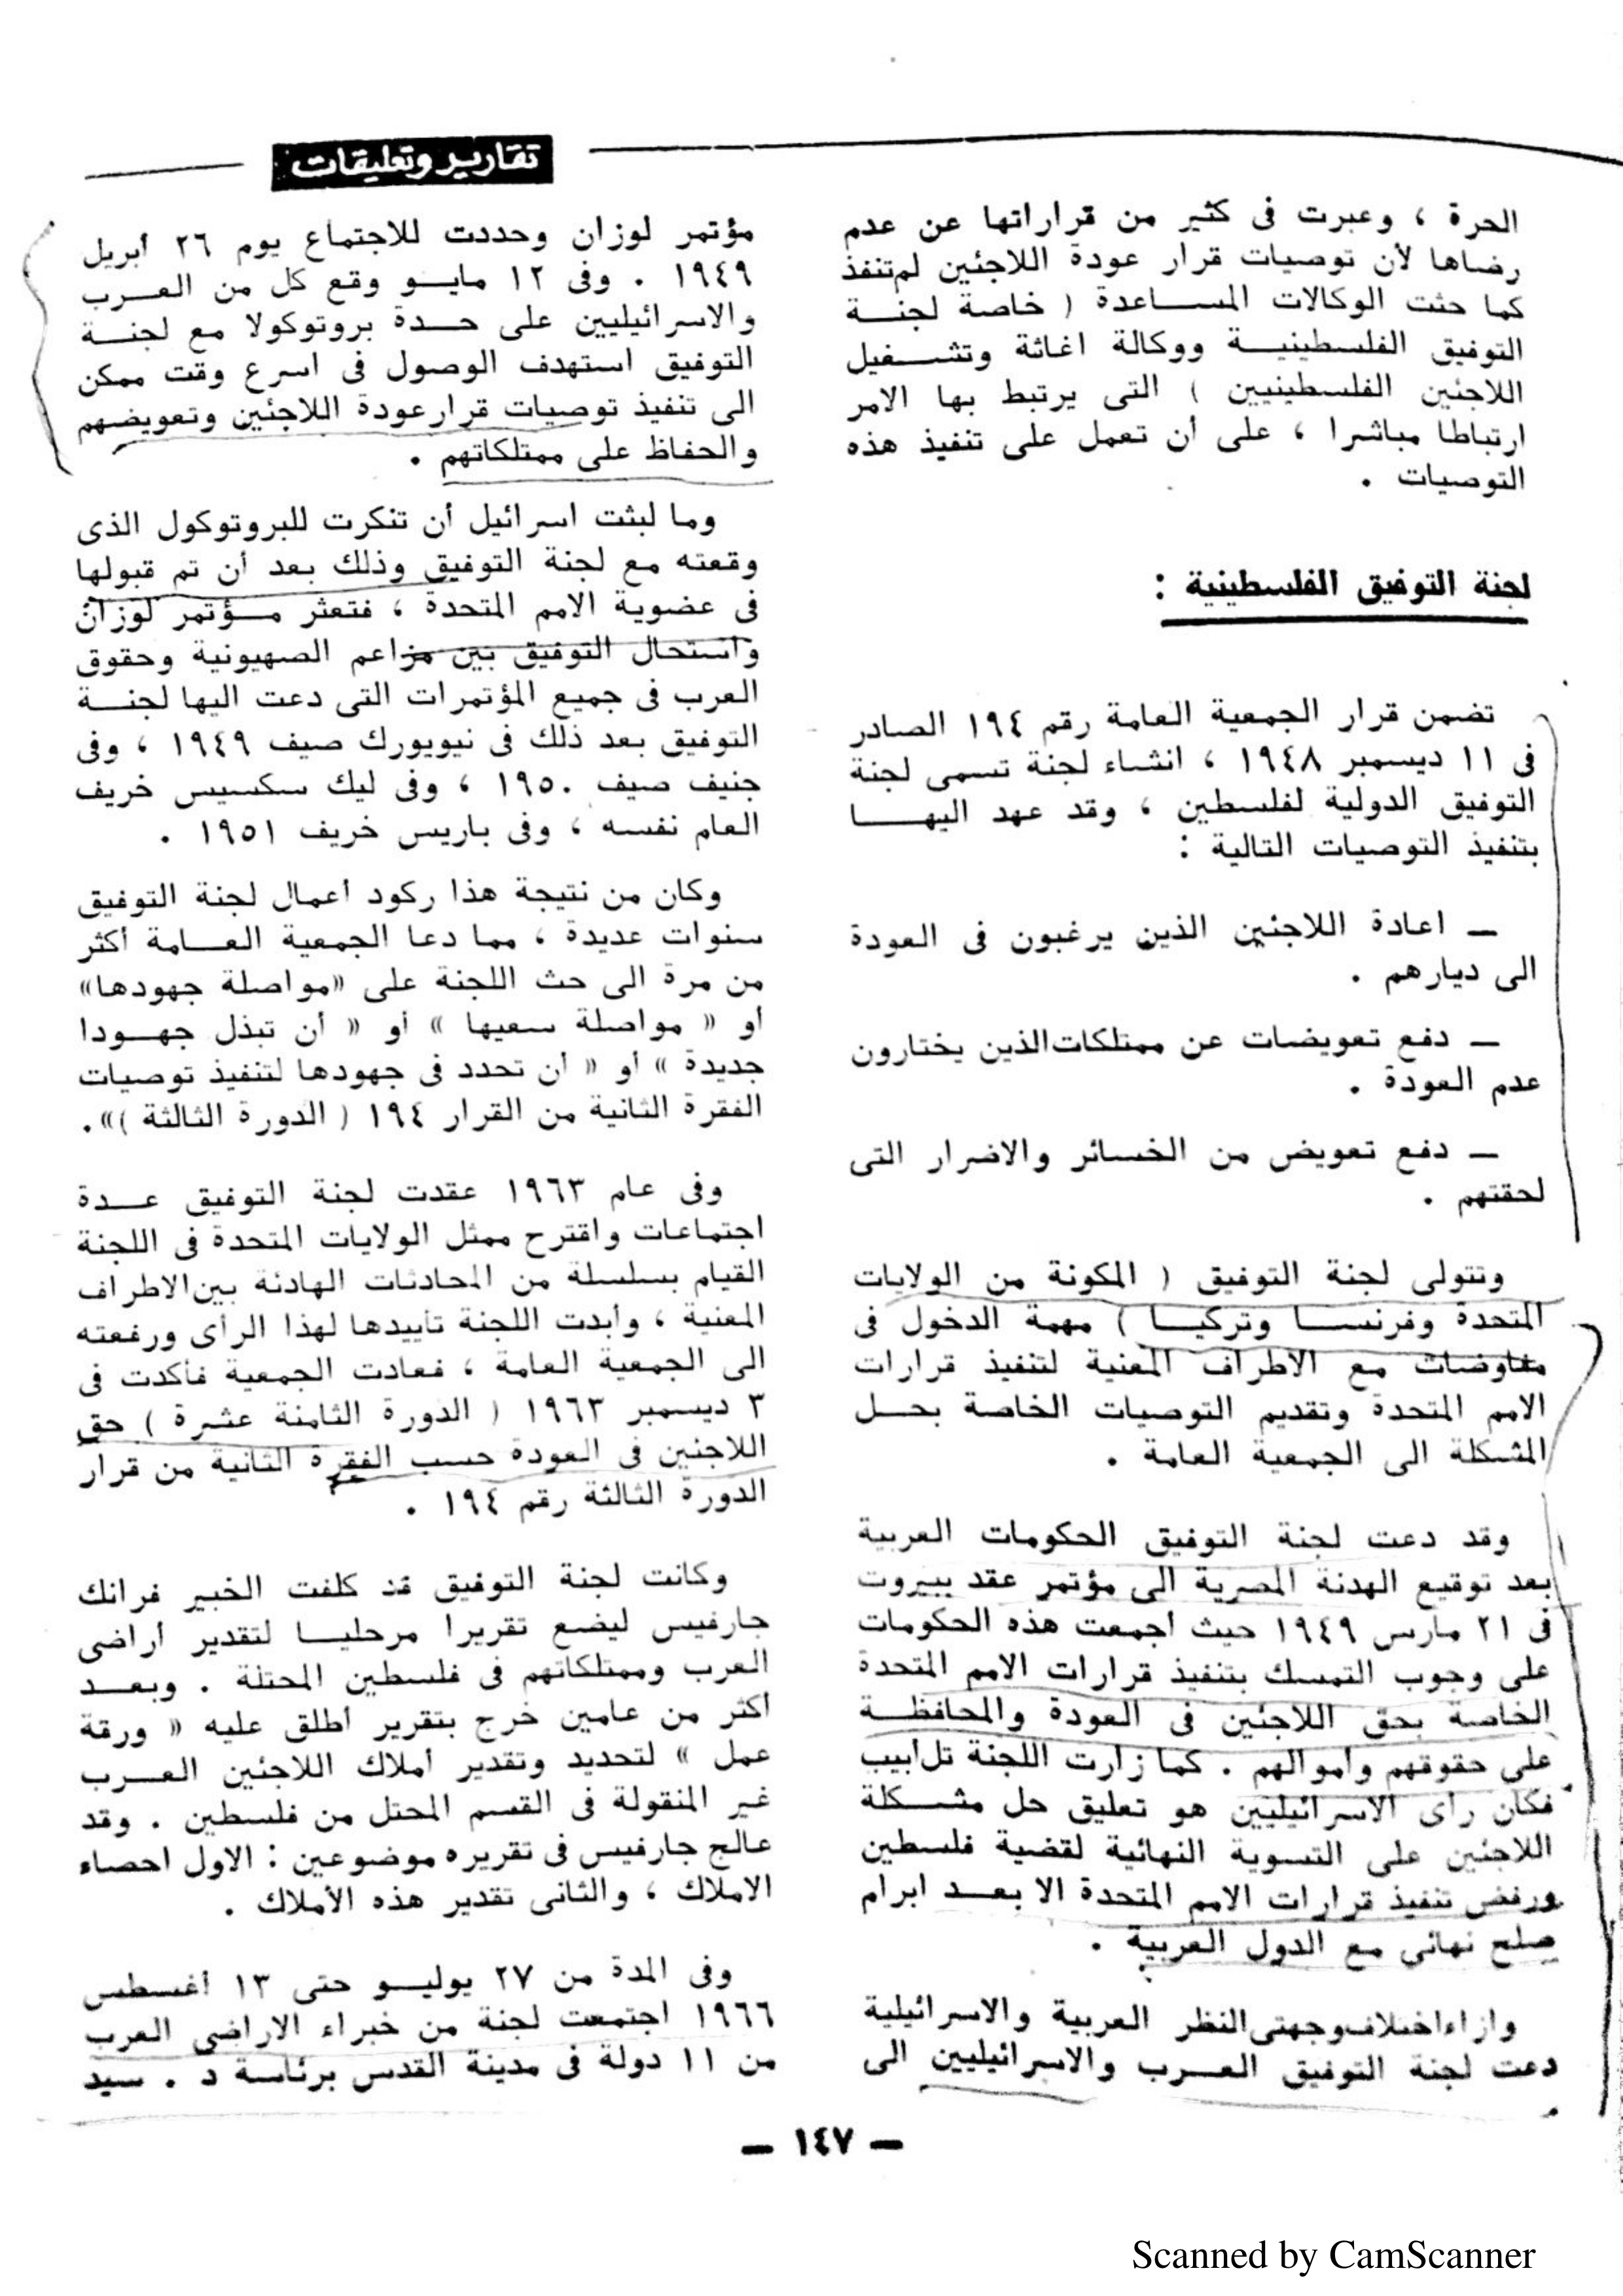 تقارير وتعليقات
الحرة ، وعبرت فى كثير من قراراتها عن عدم
رضاها لأن توصيات قرار عودة اللاجئين لم تنفذ
كما حثت الوكالات المساعدة ( خاصة لجنة
التوفيق الفلسطينية ووكالة اغاثة وتشغيل
اللاجئين الفلسطينيين ) التى يرتبط بها الامر
ارتباطا مباشرا ، على أن تعمل على تنفيذ هذه
التوصيات .
لجنة التوفيق الفلسطينية :
تضمن قرار الجمعية العامة رقم ١٩٤ الصادر
فى ١١ ديسمبر ١٩٤٨ ، انشاء لجنة تسمى لجنة
التوفيق الدولية لفلسطين ، وقد عهد اليها
بتنفيذ التوصيات التالية :
ـ اعادة اللاجئين الذين يرغبون فى العودة
الى ديارهم .
ـ دفع تعويضات عن ممتلكات الذين يختارون
عدم العودة .
ـ دفع تعويض من الخسائر والاضرار التى
لحقتهم .
وتتولى لجنة التوفيق ( المكونة من الولايات
المتحدة وفرنسا وتركيا ) مهمة الدخول فى
مفاوضات مع الاطراف المعنية لتنفيذ قرارات
الامم المتحدة وتقديم التوصيات الخاصة بحل
المشكلة الى الجمعية العامة .
وقد دعت لجنة التوفيق الحكومات العربية
بعد توقيع الهدنة المصرية الى مؤتمر عقد ببيروت
فى ٢١ مارس ١٩٤٩ حيث اجمعت هذه الحكومات
على وجوب التمسك بتنفيذ قرارات الامم المتحدة
الخاصة بحق اللاجئين فى العودة والمحافظة
على حقوقهم وأموالهم . كما زارت اللجنة تل أبيب
فكان رأى الاسرائيليين هو تعليق حل مشكلة
اللاجئين على التسوية النهائية لقضية فلسطين
ورفض تنفيذ قرارات الامم المتحدة الا بعد ابرام
صلح نهائى مع الدول العربية .
وازاء اختلاف وجهتى النظر العربية والاسرائيلية
دعت لجنة التوفيق العرب والاسرائيليين الى
مؤتمر لوزان وحددت للاجتماع يوم ٢٦ أبريل
١٩٤٩ . وفى ١٢ مايو وقع كل من العرب
والاسرائيليين على حدة بروتوكولا مع لجنة
التوفيق استهدف الوصول فى اسرع وقت ممكن
الى تنفيذ توصيات قرار عودة اللاجئين وتعويضهم
والحفاظ على ممتلكاتهم .
وما لبثت اسرائيل أن تنكرت للبروتوكول الذى
وقعته مع لجنة التوفيق وذلك بعد أن تم قبولها
فى عضوية الامم المتحدة ، فتعثر مؤتمر لوزان
واستحال التوفيق بين مزاعم الصهيونية وحقوق
العرب فى جميع المؤتمرات التى دعت اليها لجنة
التوفيق بعد ذلك فى نيويورك صيف ١٩٤٩ ، وفى
جنيف صيف ١٩٥٠ ، وفى ليك سكسيس خريف
العام نفسه ، وفى باريس خريف ١٩٥١ .
وكان من نتيجة هذا ركود أعمال لجنة التوفيق
سنوات عديدة ، مما دعا الجمعية العامة أكثر
من مرة الى حث اللجنة على «مواصلة جهودها»
أو « مواصلة سعيها » أو « أن تبذل جهودا
جديدة » أو « أن تحدد فى جهودها لتنفيذ توصيات
الفقرة الثانية من القرار ١٩٤ ( الدورة الثالثة )».
وفى عام ١٩٦٣ عقدت لجنة التوفيق عدة
اجتماعات واقترح ممثل الولايات المتحدة فى اللجنة
القيام بسلسلة من المحادثات الهادئة بين الاطراف
المعنية ، وأبدت اللجنة تأييدها لهذا الرأى ورفعته
الى الجمعية العامة ، فعادت الجمعية فأكدت فى
٣ ديسمبر ١٩٦٣ ( الدورة الثامنة عشرة ) حق
اللاجئين فى العودة حسب الفقرة الثانية من قرار
الدورة الثالثة رقم ١٩٤ .
وكانت لجنة التوفيق قد كلفت الخبير فرانك
جارفيس ليضع تقريرا مرحليا لتقدير أراضى
العرب وممتلكاتهم فى فلسطين المحتلة . وبعد
أكثر من عامين خرج بتقرير أطلق عليه « ورقة
عمل » لتحديد وتقدير أملاك اللاجئين العرب
غير المنقولة فى القسم المحتل من فلسطين . وقد
عالج جارفيس فى تقريره موضوعين : الاول احصاء
الاملاك ، والثانى تقدير هذه الأملاك .
وفى المدة من ٢٧ يوليو حتى ١٣ أغسطس
١٩٦٦ اجتمعت لجنة من خبراء الاراضى العرب
من ١١ دولة فى مدينة القدس برئاسة د . سيد
ـ ١٤٧ ـ
Scanned by CamScanner